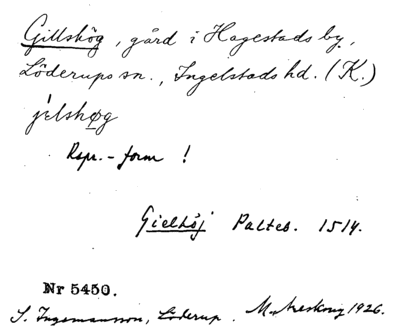 Gillshög, gård i Hagestads by,
Löderups sn., Ingelstads hd. (K.)
jelshøg
Rspr.-form !
Gielhöj Paltes. 1514.
Nr 5450.
S. Ingemansson, Löderup. M. Areskoug 1926.